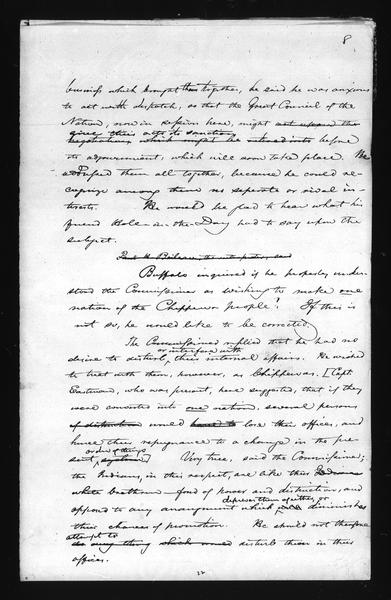 8
business which brought them together, he said he was anxious
to act with dispatch, so that the Great Council of the
Nation, now in session here, might act upon the
give their acts its sanction,
negotiations which might be entered into before
its adjournment, which will soon take place. He
addressed them all together, because he could re-
cognize among them no seperate or rival in-
terests. He would be glad to hear what his
friend Hole-in-the-Day had to say upon the
subject.
Paul H. Beaulieu the interpreter, said
Buffalo inquired if he properly under-
stood the Commissioner as wishing to make one
nation of the Chippewa people? If this is
not so, he would like to be corrected.
The Commissioner replied that he had no
or interfere with
desire to disturb, their internal affairs. He wished
to treat with them, however, as Chippewas. [Capt
Eastman, who was present, here suggested, that if they
were converted into one nation, several persons
of distinction would have to lose their offices, and
hence their repugnance to a change in the pre-
order of things
sent system.] Very true, said the Commissioner;
the Indians, in this respect, are like their
white brethren fond of power and distinction, and
deprive them of either, or
oppose to any arrangement which diminishes
their chances of promotion. He should not therefore
attempt to
do any thing which would disturb them in their
offices.
22